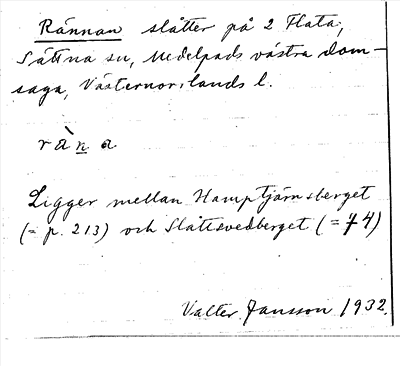 Rännan slåtter på 2 Flata,
Sättna sn, Medelpads västra dom-
saga, Västernorrlands l.
ràṉa
Ligger mellan Hamptjärnsberget
(= p. 213) och Slåttsvedberget (= 74)
Valter Jansson 1932.